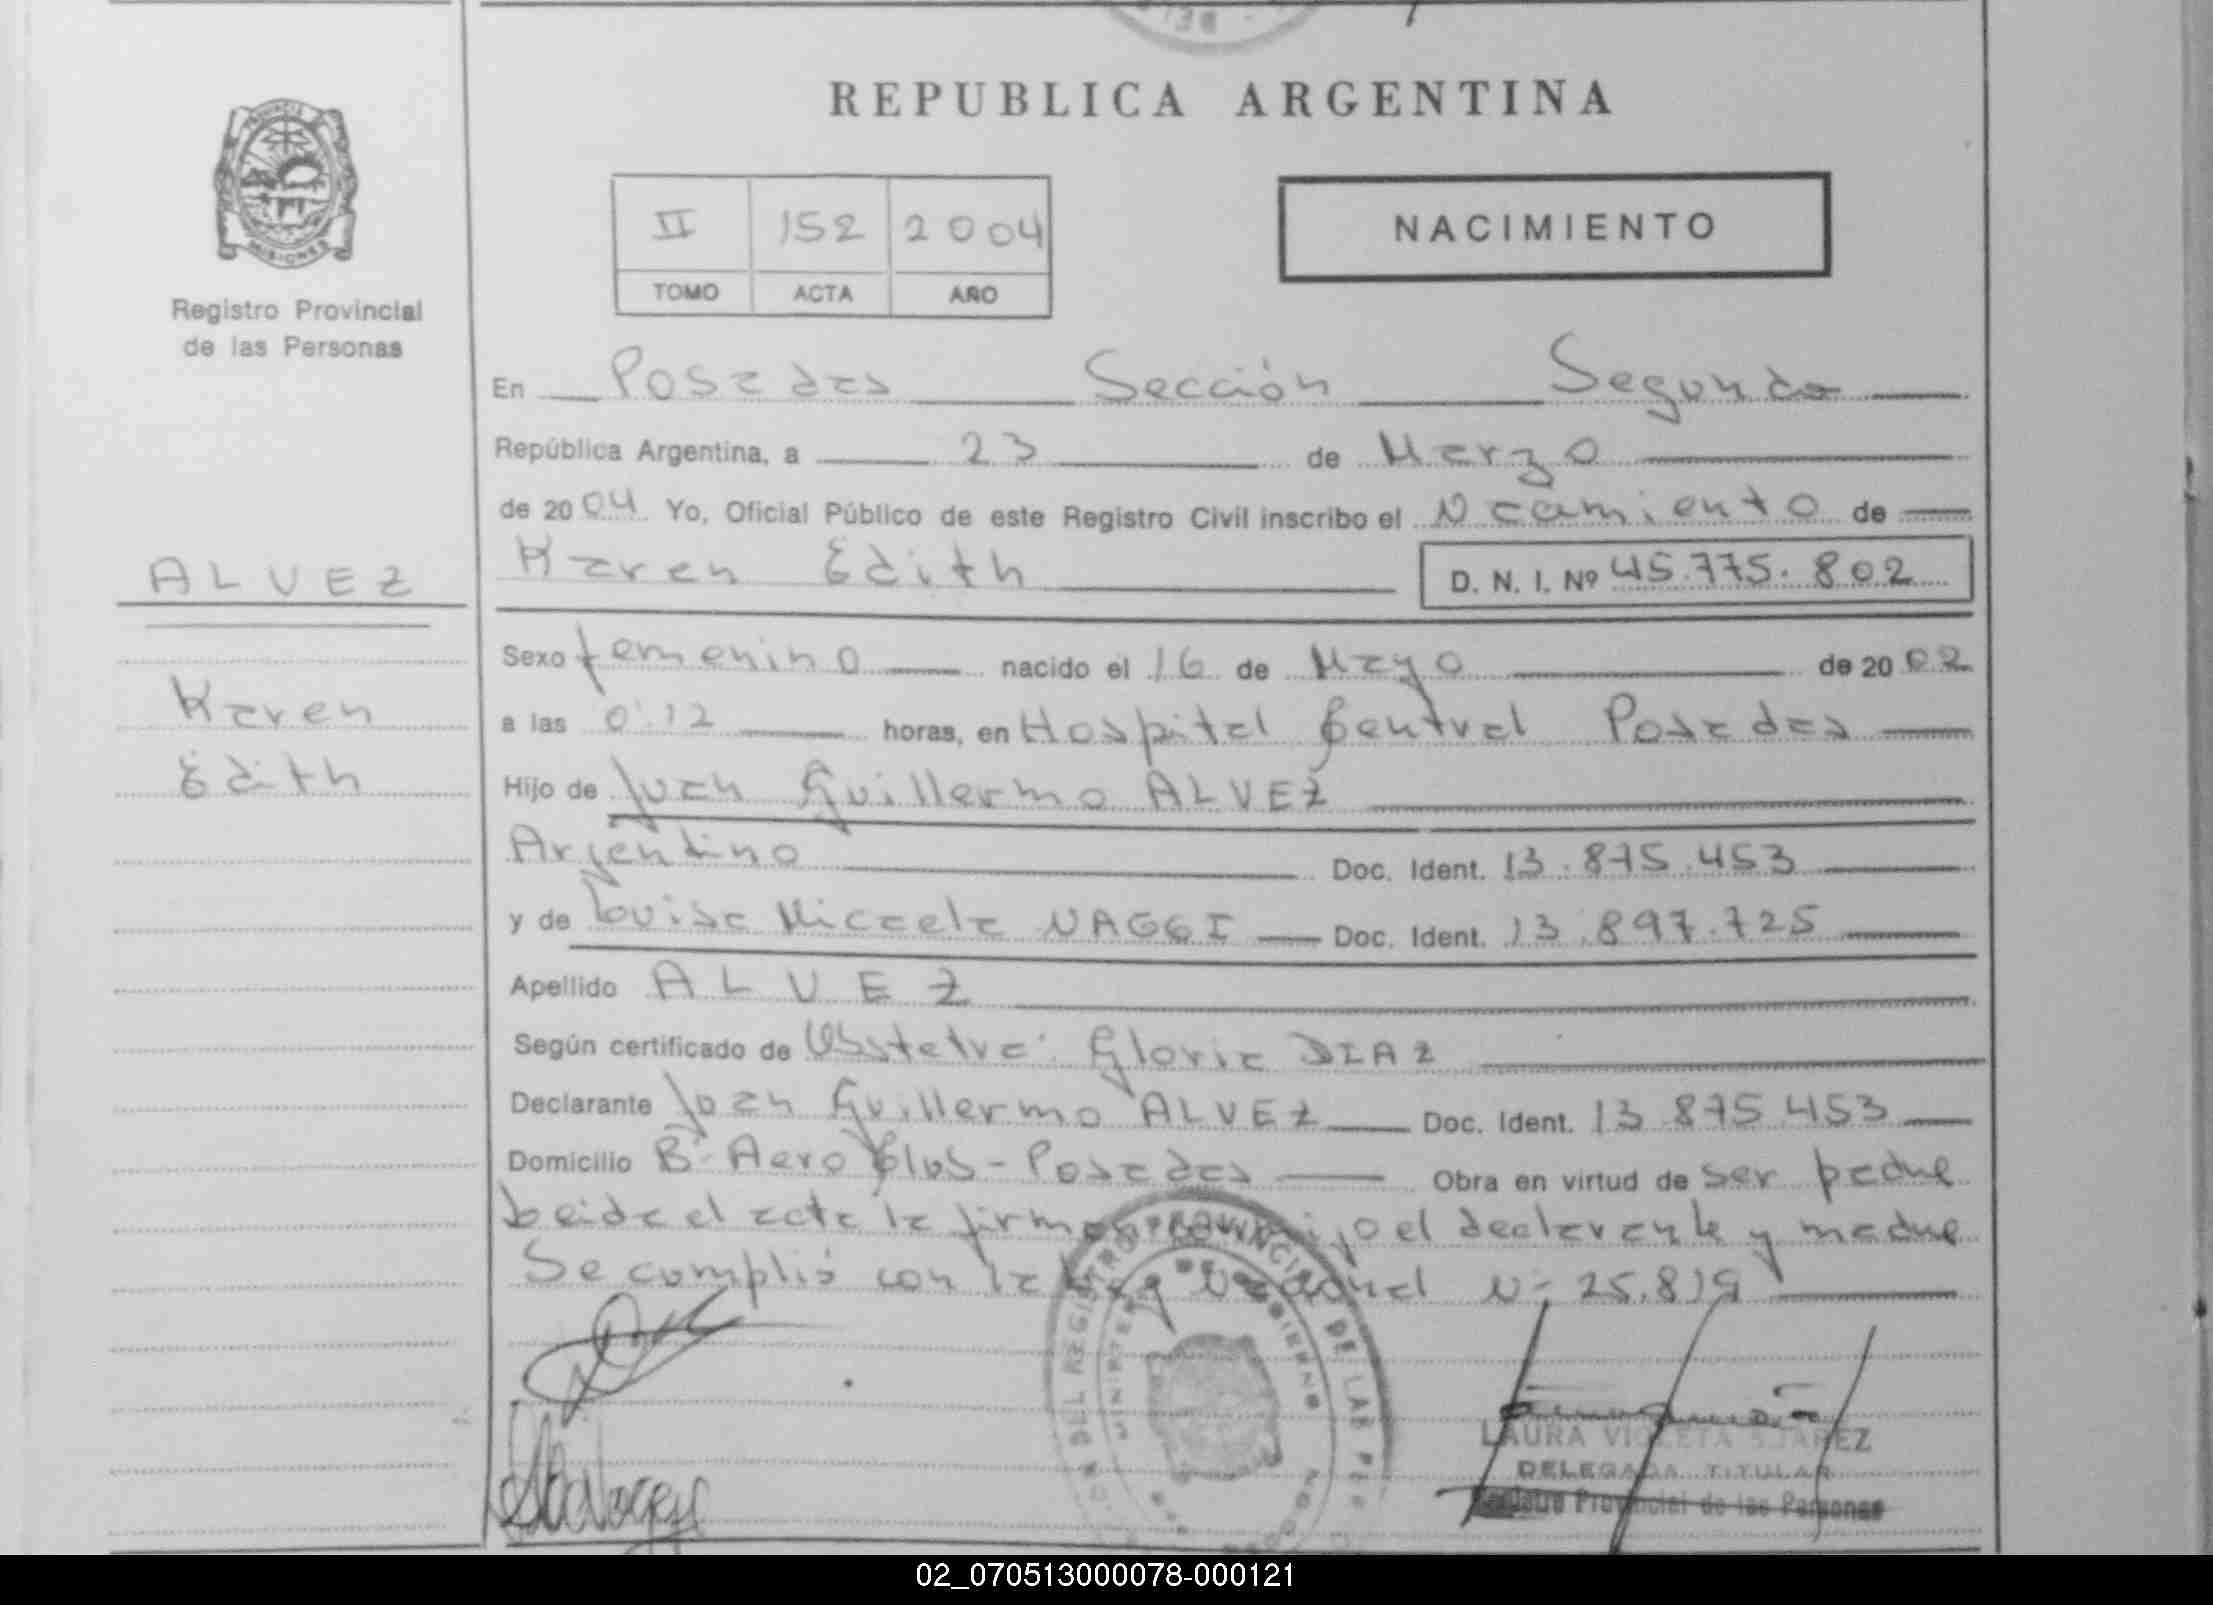 REPUBLICA ARGENTINA
PROVINCIA
MISIONES
Registro Provincial
de las Personas
II 152 2004
TOMO ACTA AÑO
NACIMIENTO
En Posadas Sección Segunda
República Argentina, a 23 de Marzo
de 2004 Yo, Oficial Público de este Registro Civil inscribo el Nacimiento de
ALVEZ
Karen Edith D. N. I. Nº 45.775.802
Sexo femenino nacido el 16 de Mayo de 2002
Karen
a las 0:12 horas, en Hospital Central Posadas
Edith
Hijo de Juan Guillermo ALVEZ
Argentino Doc. Ident. 13.875.453
y de Luisa Micaela NAGGI Doc. Ident. 13.897.725
Apellido ALVEZ
Según certificado de Obstetra Gloria DIAZ
Declarante Juan Guillermo ALVEZ Doc. Ident. 13.875.453
Domicilio Bº Aero Club - Posadas Obra en virtud de ser padre
Leida el acta la firman el declarante y madre
Se cumplió con la Ley Nacional Nº 25.819
LAURA VIOLETA SUAREZ
DELEGADA TITULAR
Registro Provincial de las Personas
02_070513000078-000121